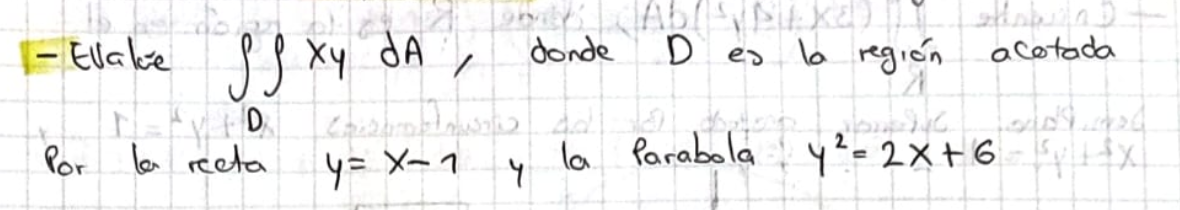 - Evalúe ∫∫ xy dA, donde D es la región acotada
D
Por la recta y = x-1 y la Parabola y² = 2x+6